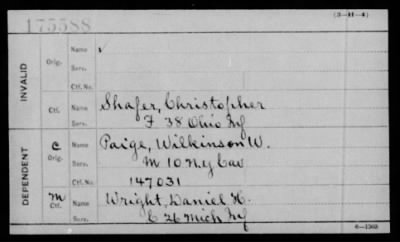 (3-11-4)
175588
INVALID
Orig.
Name
Serv.
Ctf. No.
Ctf.
Name Shafer, Christopher
Serv. F 38 Ohio Inf
DEPENDENT
C
Orig.
Name Paige, Wilkinson W.
Serv. M 10 N.Y Cav
Ctf. No. 147031
M
Ctf.
Name Wright, Daniel H.
Serv. E 26 Mich Inf